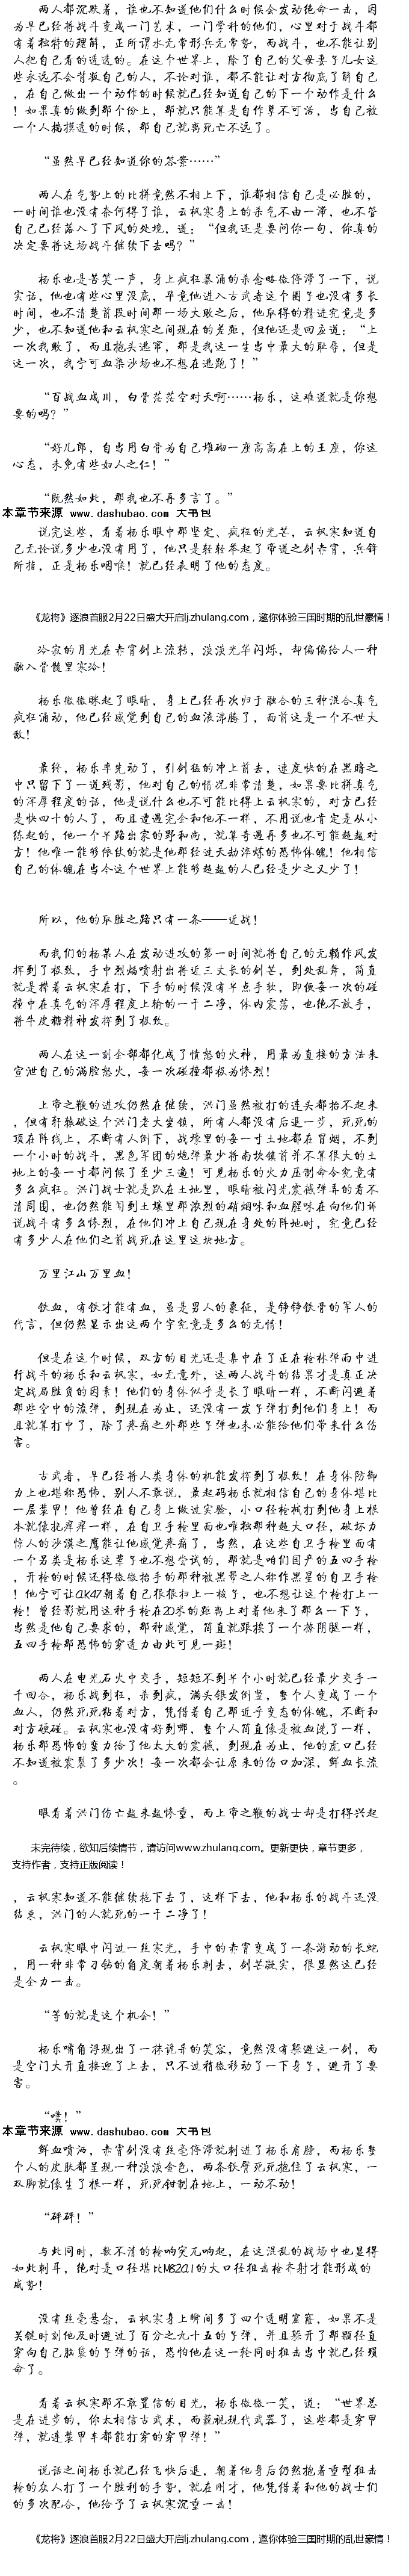 两人都沉默着，谁也不知道他们什么时候会发动绝命一击，因
为早已经将战斗变成一门艺术，一门学科的他们，心里对于战斗都
有着独特的理解，正所谓水无常形兵无常势，而战斗，也不能让别
人把自己看的透透的。在这个世界上，除了自己的父母妻子儿女这
些永远不会背叛自己的人，不论对谁，都不能让对方彻底了解自己
，在自己做出一个动作的时候就已经知道自己的下一个动作是什么
！如果真的做到那个份上，那就只能算是自作孽不可活，当自己被
一个人揣摸透的时候，那自己就离死亡不远了。
“虽然早已经知道你的答案……”
两人在气势上的比拼竟然不相上下，谁都相信自己是必胜的，
一时间谁也没有奈何得了谁，云枫寒身上的杀气不由一滞，也不管
自己已经落入了下风的处境，道：“但我还是要问你一句，你真的
决定要将这场战斗继续下去吗？”
杨乐也是苦笑一声，身上疯狂暴涌的杀念略微停滞了一下，说
实话，他也有些心里没底，毕竟他进入古武者这个圈子也没有多长
时间，也不清楚前段时间那一场大败之后，他取得的精进究竟是多
少，也不知道他和云枫寒之间现在的差距，但他还是回应道：“上
一次我败了，而且抱头逃窜，那是我这一生当中最大的耻辱，但是
这一次，我宁可血染沙场也不想在逃跑了！”
“百战血成川，白骨茫茫空对天啊……杨乐，这难道就是你想
要的吗？”
“好儿郎，自当用白骨为自己堆砌一座高高在上的王座，你这
心态，未免有些妇人之仁！”
“既然如此，那我也不再多言了。”
本章节来源 www.dashubao.com 大书包
说完这些，看着杨乐眼中那坚定、疯狂的光芒，云枫寒知道自
己无论说多少也没有用了，他只是轻轻举起了帝道之剑赤霄，兵锋
所指，正是杨乐咽喉！就已经表明了他的态度。
《龙将》逐浪首服2月22日盛大开启lj.zhulang.com，邀你体验三国时期的乱世豪情！
冷寂的月光在赤霄剑上流转，淡淡光华闪烁，却偏偏给人一种
融入骨髓里寒冷！
杨乐微微眯起了眼睛，身上已经再次归于融合的三种混合真气
疯狂涌动，他已经感觉到自己的血液沸腾了，面前这是一个不世大
敌！
最终，杨乐率先动了，引剑猛的冲上前去，速度快的在黑暗之
中只留下了一道残影，他对自己的情况非常清楚，如果要比拼真气
的浑厚程度的话，他是说什么也不可能比得上云枫寒的，对方已经
是快四十的人了，而且遭遇完全和他不一样，不用说也肯定是从小
练起的，他一个半路出家的野和尚，就算奇遇再多也不可能超越对
方！他唯一能够依仗的就是他那经过天劫淬炼的恐怖体魄！他相信
自己的体魄在当今这个世界上能够超越的人已经是少之又少了！
所以，他的取胜之路只有一条——近战！
而我们的杨某人在发动进攻的第一时间就将自己的无赖作风发
挥到了极致，手中烈焰喷射出将近三丈长的剑芒，到处乱舞，简直
就是撵着云枫寒在打，下手的时候没有半点手软，即便每一次的碰
撞中在真气的浑厚程度上输的一干二净，体内震荡，也绝不放手，
将牛皮糖精神发挥到了极致。
两人在这一刻全部都化成了愤怒的火神，用最为直接的方法来
宣泄自己的满脸怒火，每一次碰撞都极为惨烈！
上帝之鞭的进攻仍然在继续，洪门虽然被打的连头都抬不起来
，但有轩辕破这个洪门老大坐镇，所有人都没有后退一步，死死的
顶在阵线上，不断有人倒下，战壕里的每一寸土地都在冒烟，不到
一个小时的战斗，黑色军团的炮弹最少将南坎镇前并不算很大的土
地上的每一寸都问候了至少三遍！可见杨乐的火力压制命令究竟有
多么疯狂。洪门战士就是趴在土地里，眼睛被闪光震撼弹弄的看不
清周围，也仍然能闻到土壤里那浓烈的硝烟味和血腥味在向他们诉
说战斗有多么惨烈，在他们冲上自己现在身处的阵地时，究竟已经
有多少人在他们之前战死在这里这块地方。
万里江山万里血！
铁血，有铁才能有血，虽是男人的象征，是铮铮铁骨的军人的
代言，但仍然显示出这两个字究竟是多么的无情！
但是在这个时候，双方的目光还是集中在了正在枪林弹雨中进
行战斗的杨乐和云枫寒，如无意外，这两人战斗的结果才是真正决
定战局胜负的因素！他们的身体似乎是长了眼睛一样，不断闪避着
那些空中的流弹，到现在为止，还没有一发子弹打到他们身上！而
且就算打中了，除了疼痛之外那些子弹也未必能给他们带来什么伤
害。
古武者，早已经将人类身体的机能发挥到了极致！在身体防御
力上也堪称恐怖，别人不敢说，最起码杨乐就相信自己的身体堪比
一层装甲！他曾经在自己身上做过实验，小口径枪械打到他身上根
本就像挠痒痒一样，在自卫手枪里面也唯独那种超大口径，破坏力
惊人的沙漠之鹰能让他感觉疼痛了，当然，在这些自卫手枪里面有
一个另类是杨乐这辈子也不想尝试的，那就是咱们国产的五四手枪
，开枪的时候还得微微抬手的那种被黑帮之人称作黑星的自卫手枪
！他宁可让AK47朝着自己狠狠扫上一梭子，也不想让这个枪打上一
枪！曾经影就用这种手枪在20米的距离上对着他来了那么一下子，
当然是他自己要求的，那种感觉，简直就跟挨了一个撩阴腿一样，
五四手枪那恐怖的穿透力由此可见一斑！
两人在电光石火中交手，短短不到半个小时就已经最少交手一
千回合，杨乐战到狂，杀到疯，满头银发倒竖，整个人变成了一个
血人，仍然死死粘着对方，凭借着自己那近乎变态的体魄，不断和
对方硬碰。云枫寒也没有好到哪，整个人简直像是被血洗了一样，
杨乐那恐怖的蛮力给了他太大的震撼，到现在为止，他的虎口已经
不知道被震裂了多少次！每一次都会让原来的伤口加深，鲜血长流
。
眼看着洪门伤亡越来越惨重，而上帝之鞭的战士却是打得兴起
未完待续，欲知后续情节，请访问www.zhulang.com。更新更快，章节更多，
支持作者，支持正版阅读！
，云枫寒知道不能继续拖下去了，这样下去，他和杨乐的战斗还没
结束，洪门的人就死的一干二净了！
云枫寒眼中闪过一丝寒光，手中的赤霄变成了一条游动的长蛇
，用一种非常刁钻的角度朝着杨乐刺去，剑芒凝实，很显然这已经
是全力一击。
“等的就是这个机会！”
杨乐嘴角浮现出了一抹诡异的笑容，竟然没有躲避这一剑，而
是空门大开直接迎了上去，只不过稍微移动了一下身子，避开了要
害。
“噗！”
本章节来源 www.dashubao.com 大书包
鲜血喷洒，赤霄剑没有丝毫停滞就刺进了杨乐肩膀，而杨乐整
个人的皮肤都呈现一种淡淡金色，两条铁臂死死抱住了云枫寒，一
双脚就像生了根一样，死死钳制在地上，一动不动！
“砰砰！”
与此同时，数不清的枪响突兀响起，在这混乱的战场中也显得
如此刺耳，绝对是口径堪比M82A1的大口径狙击枪齐射才能形成的
威势！
没有丝毫悬念，云枫寒身上瞬间多了四个透明窟窿，如果不是
关键时刻他及时避过了百分之九十五的子弹，并且躲开了那颗径直
穿向自己脑袋的子弹的话，恐怕他在这一轮同时狙击当中就已经殒
命了。
看着云枫寒那不敢置信的目光，杨乐微微一笑，道：“世界总
是在进步的，你太相信古武术，而藐视现代武器了，这些都是穿甲
弹，就连装甲车都能打穿的穿甲弹！”
说话之间杨乐就已经飞快后退，朝着他身后仍然抱着重型狙击
枪的众人打了一个胜利的手势，就在刚才，他凭借着和他的战士们
的多次配合，他给予了云枫寒沉重一击！
《龙将》逐浪首服2月22日盛大开启lj.zhulang.com，邀你体验三国时期的乱世豪情！